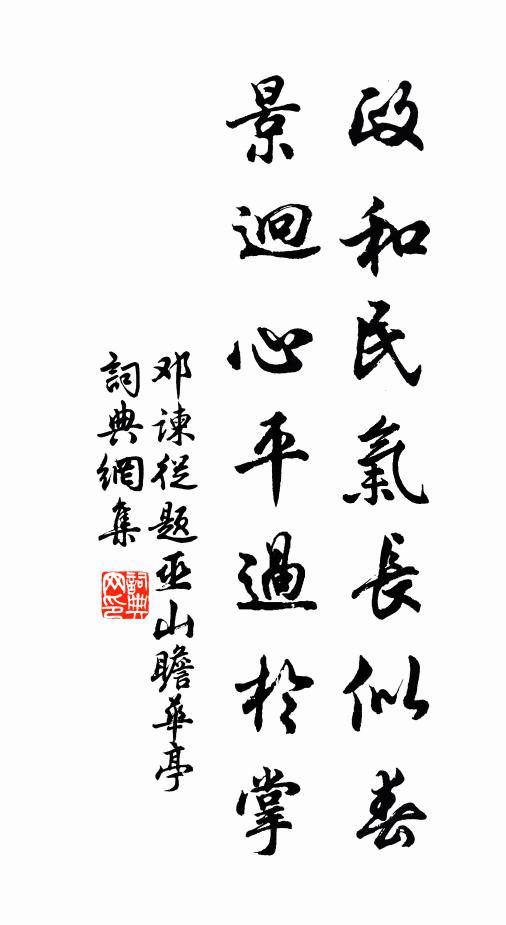 政和民氣長似春
景迥心平過於掌
邓谏從题巫山瞻華亭
詞典網集
詞典網印